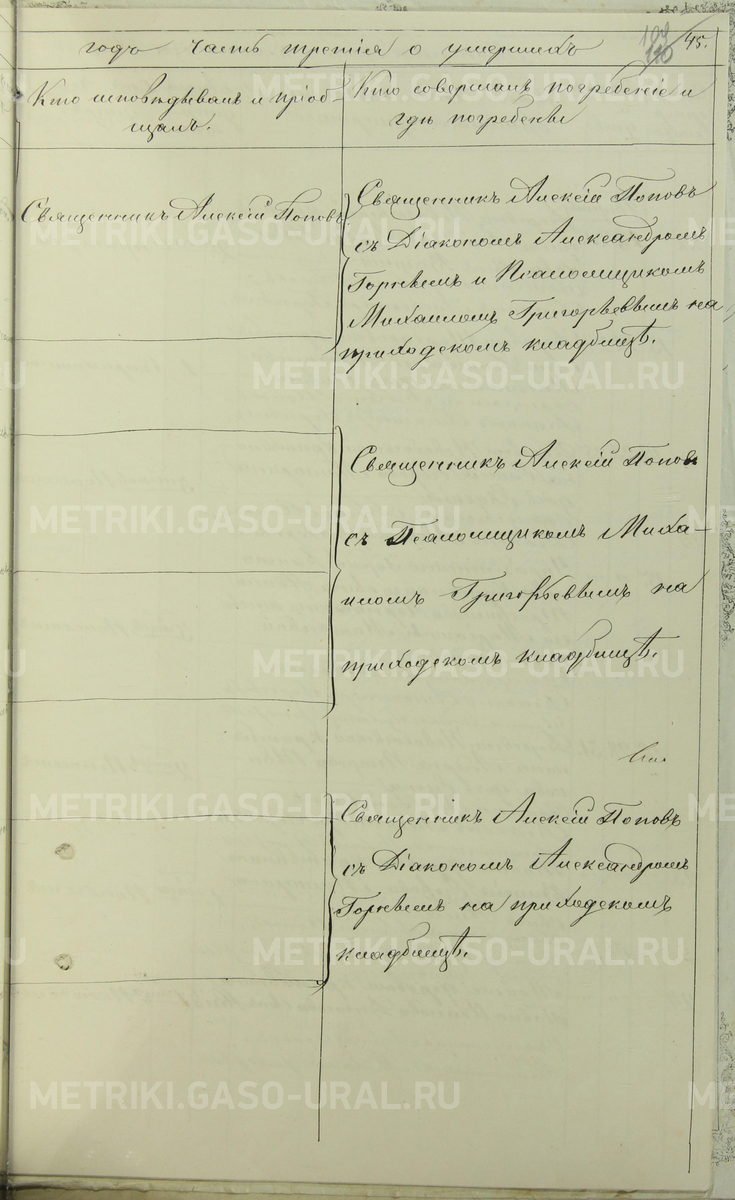 109
110
45.
годъ часть третія о умершихъ
Кто исповѣдывалъ и пріоб-
щалъ.
Кто совершалъ погребеніе и
гдѣ погребены
Священникъ Алексій Поповъ
Священникъ Алексій Поповъ
съ Діакономъ Александромъ
и Псаломщикомъ
Михаиломъ Григорьевымъ на
приходскомъ кладбищѣ.
Священникъ Алексій Поповъ
съ Псаломщикомъ Миха-
иломъ Григорьевымъ на
приходскомъ кладбищѣ.
Священникъ Алексій Поповъ
съ Діакономъ Александромъ
на приходскомъ
кладбищѣ.
METRIKI.GASO-URAL.RU